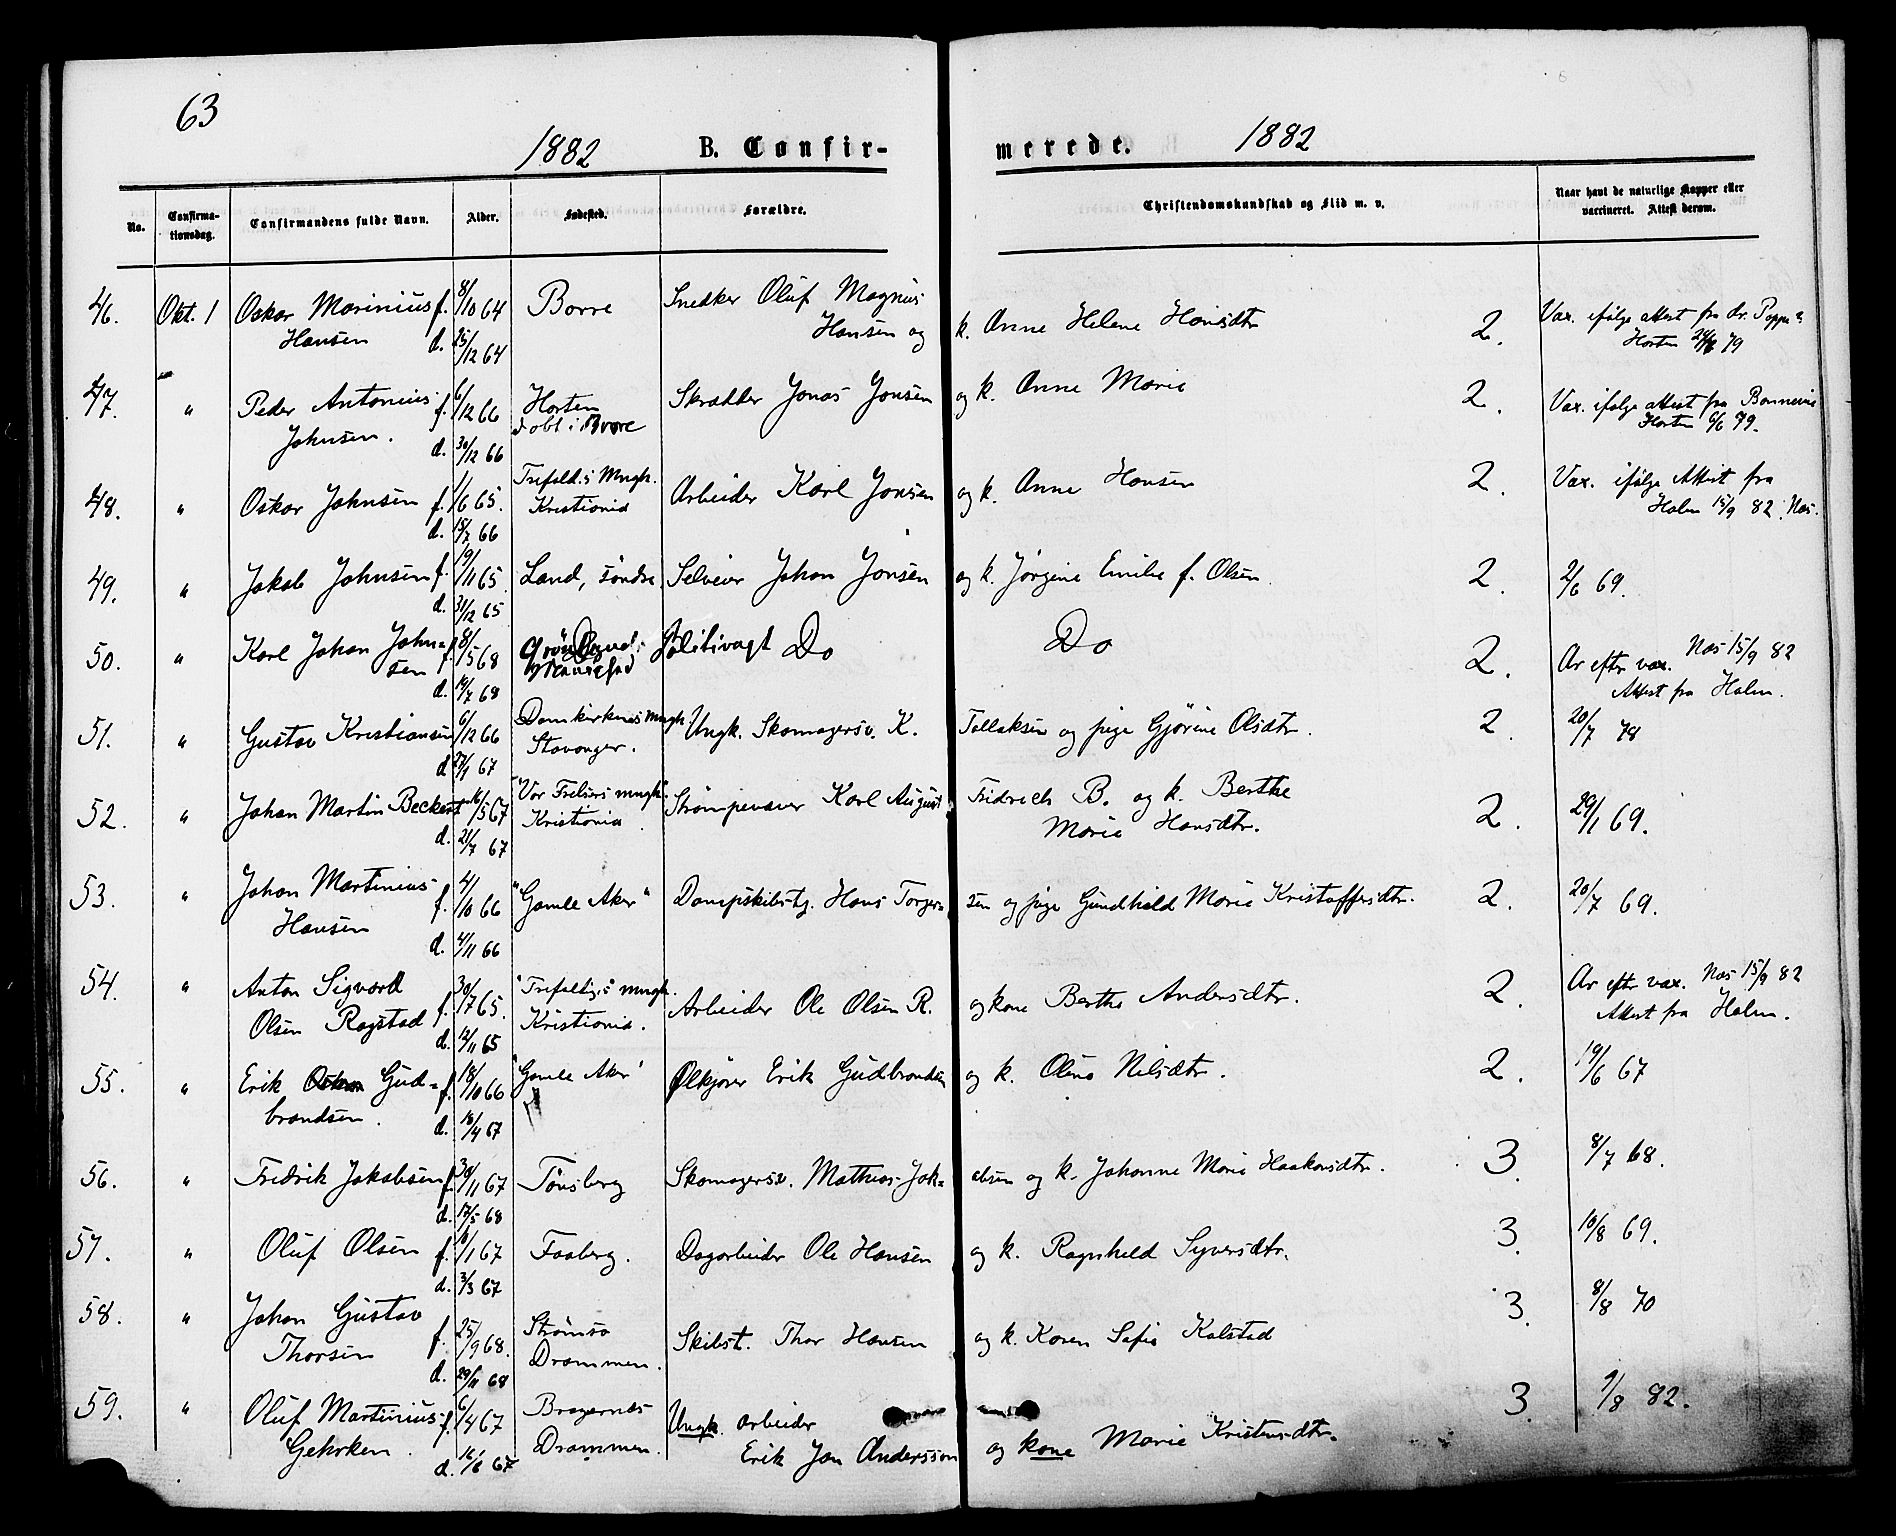 63
1882 B. Confir- merede. 1882
No. Confirma-tionsdag. Confirmandens fulde Navn. Alder. Fødested. Forældre. Christendomskundskab og Flid m. v. Naar havt de naturlige Kopper eller vaccineret. Attest derom.
46. Okt. 1 Oskar Marinius f. 8/10 64 Borre Snedker Oluf Magnus k. Anne Helene Hansdtr 2. Vax. ifølge attest fra dr.
Hansen d. 25/12 64 Hansen og Horten 79
47. " Peder Antonius f. 6/12 66 Horten Skrædder Jonas Jonsen og k. Anne Marie 2. Vax. ifølge attest fra Bonnevie
Johnsen. d. 30/12 66 døbt i Borre Horten 6/6 79.
48. " Oskar Johnsen f. 1/6 65. Trefold.s Mngh. Kristiania Arbeider Karl Jonsen og k. Anne Hansen 2. Vax. ifølge Attest fra
d. 15/7 66 Holm 15/9 82. Næs.
49. " Jakob Johnsen f. 19/11 65. Land, søndre. Selveier Johan Jonsen og k. Jørgine Emilie f. Olsen. 2. 2/6 69.
d. 31/12 65
50. " Karl Johan John= f. 8/5 68 Politivagt Do Do 2. Ar efter vax. Næs 15/9 82
sen d. 19/7 68 Attest fra Holm.
51. " Gustav Kristiansen 6/12 66 Domkirkens Mngh. Ungk. Skomagersv. K. Tollaksen og pige Gjørine Olsdtr. 2. 20/7 78
d 27/1 67 Stavanger.
52. " Johan Martin Beckert 16/5 67 "Vor Frelsers mngh." Strømpevæver Karl August Fridrich B. og k. Berthe 2. 29/11 69.
d. 21/7 67 Kristiania. Marie Hansdtr.
53. " Johan Martinius f. 4/10 66 "Gamle Aker" Dampskibstj. Hans Torger= sen og pige Gundhild Marie Kristoffersdtr. 2. 20/7 69.
Hansen d. 4/11 66
54. " Anton Sigvard f. 30/7 65. "Trefoltig.s mngh. Arbeider Ole Olsen R. og kone Berthe Andersdtr. 2. Ar eftr vax. Næs 15/9 82
Olsen Rogstad d. 12/11 65 Kristiania. Attest fra Holm.
55. " Erik Oskar Gud= f. 18/10 66 "Gamle Aker" Ølkjører Erik Gudbrandsen og k. Olena Nilsdtr. 2. 19/6 67
brandsen. d. 18/4 67
56. " Fredrik Jakobsen f. 30/11 67 Tönsberg Skomagersv. Mathias Jak= obsen og k. Johanne Marie Haakonsdtr. 3. 8/7 68.
d. 17/5 68
57. " Oluf Olsen f. 10/1 67 Faaberg. Dagarbeider Ole Hansen og k. Ragnhild Syversdtr. 3. 10/8 69.
d. 3/3 67
58. " Johan Gustav f. 25/9 68. Strömsö Skibst. Thor Hansen og k. Karen Sofie Kalstad 3. 8/8 70
Thorsen d. 29/11 68 Drammen.
59. " Oluf Martinius f. 6/4 67 Bragernæs Ungk. arbeider og kone Marie Kristensdtr. 3. 1/8 82.
Gehrken. d. 16/6 67 Drammen. Erik Jan Andersson